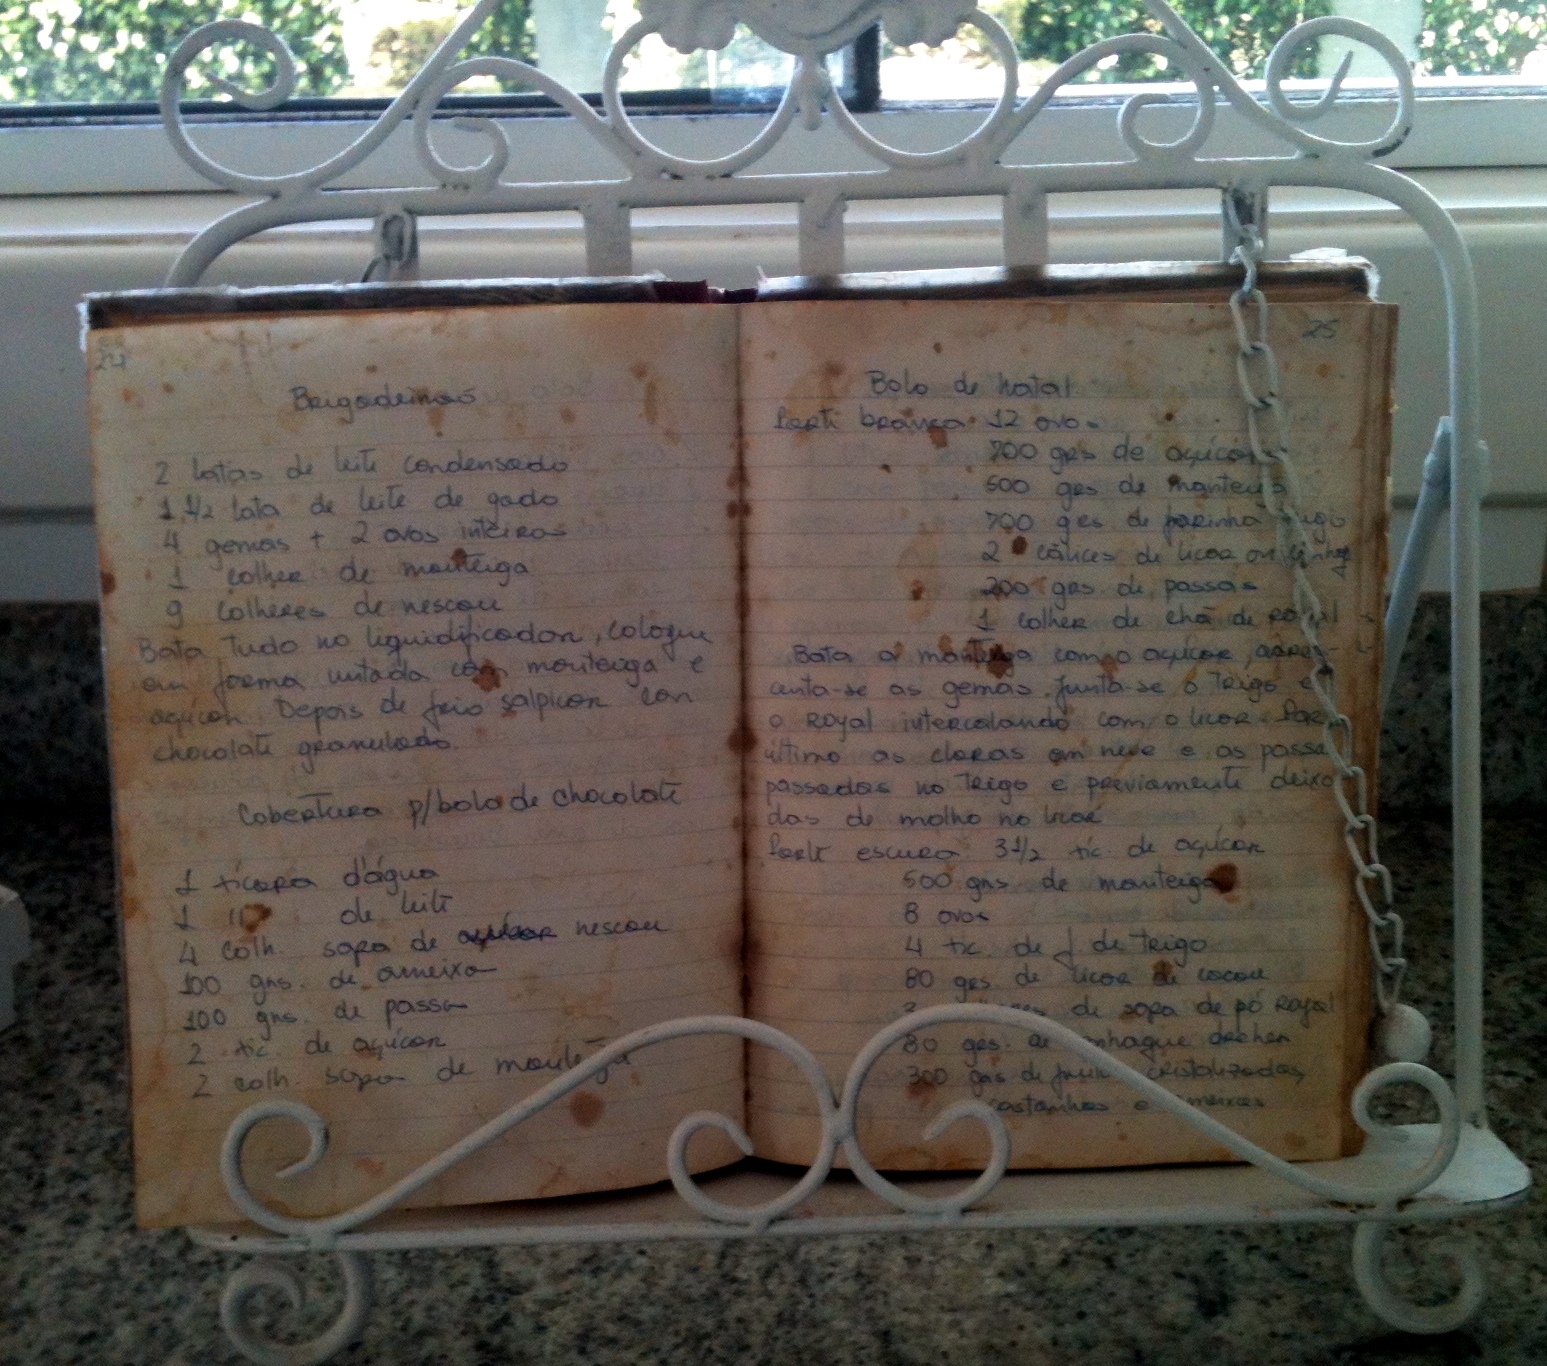 24
Brigadeirão
2 latas de leite condensado
1 1/2 lata de leite de gado
4 gemas + 2 ovos inteiros
1 colher de manteiga
9 colheres de nescau
Bata tudo no liquidificador, coloque
em forma untada com manteiga e
açúcar. Depois de frio salpicar con
chocolate granulado.
Cobertura p/bolo de chocolate
1 xícara d'água
1 " de leite
4 colh. sopa de nescau
100 grs. de ameixa
100 grs. de passa
2 xic. de açúcar
2 colh. sopa de manteiga
25
Bolo de natal
Parte branca 12 ovos
700 grs de açúcar
500 grs de manteiga
700 grs de farinha trigo
2 cálices de licor ou
200 grs de passas
1 colher de chá de royal
Bata a manteiga com o açúcar, acres-
centa-se as gemas. Junta-se o trigo e
o Royal intercalando com o licor. Por
último as claras em neve e as passa
passadas no trigo e previamente deixa
das de molho no licor
Parte escura 3 1/2 xic. de açúcar
500 grs. de manteiga
8 ovos
4 xic. de f de trigo
80 grs. de licor de cacau
de sopa de pó Royal
80 grs. de dreher
300 grs de frutas cristalizadas,
castanhas e ameixas